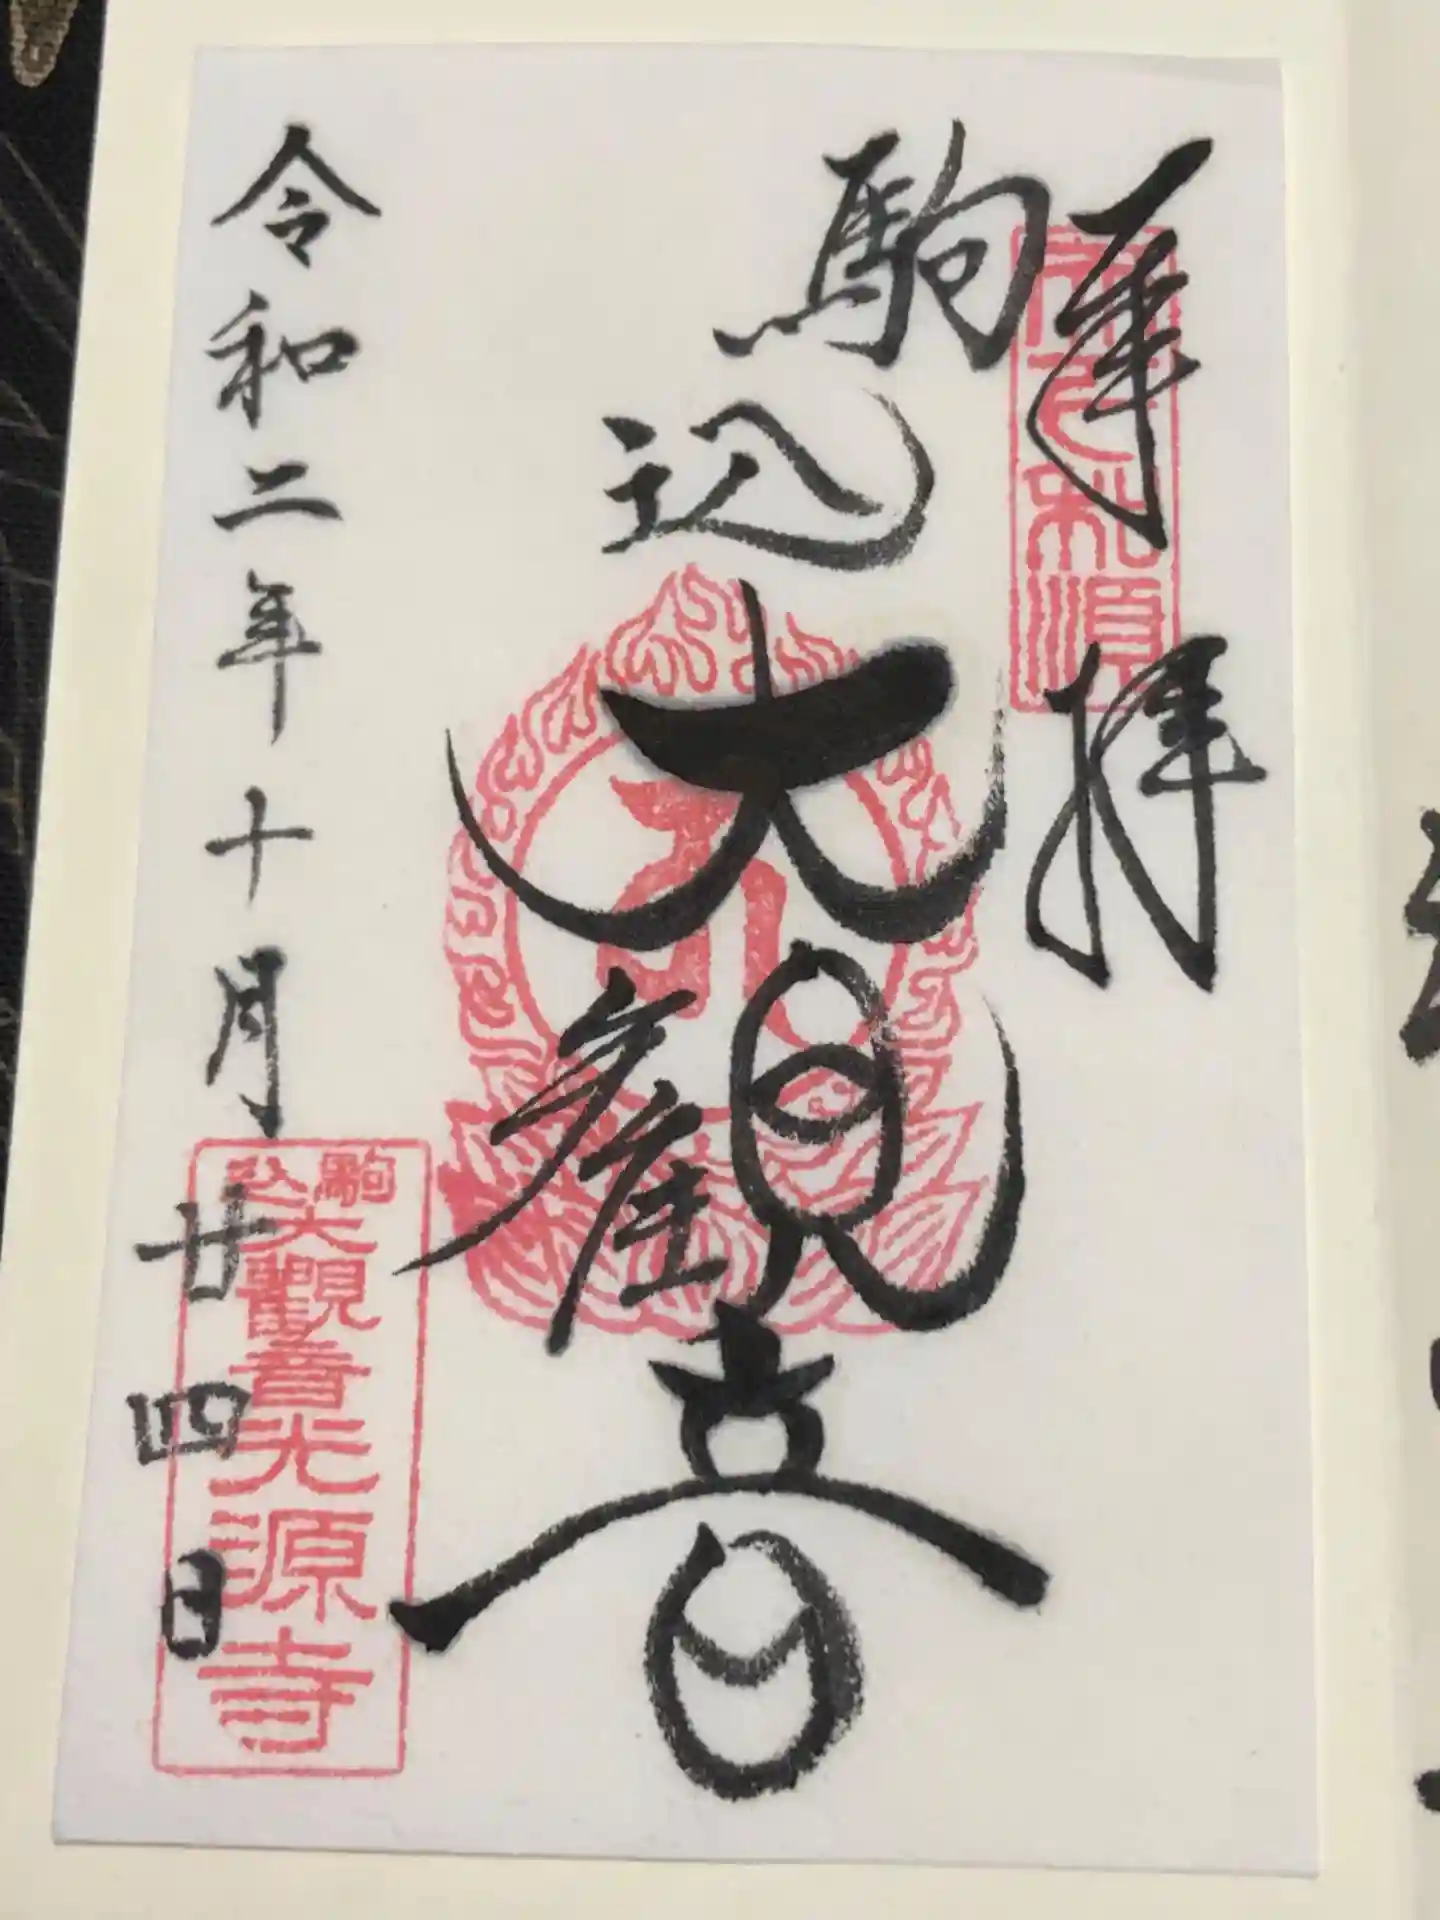 奉拝
天下和順
駒込大観音
令和二年十月廿四日
駒込大觀音光源寺